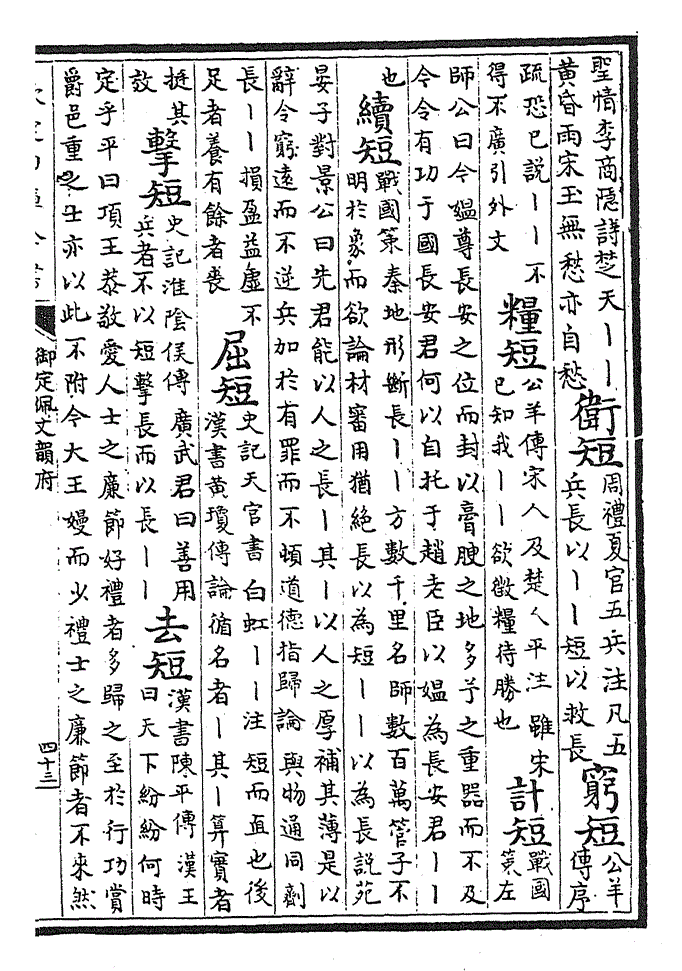 聖情李商隠詩楚天丨丨
黄昏雨宋玉無愁亦自愁
衛短
周禮夏官五兵注凡五
兵長以丨丨短以救長
窮短
公羊
傳序
疏恐已説丨丨不
得不廣引外文
糧短
公羊傳宋人及楚人平注雖宋
已知我丨丨欲徴糧待勝也
計短
戰國
策左
師公曰今媪尊長安之位而封以膏腴之地多予之重器而不及
今令有功于國長安君何以自托于趙老臣以媪為長安君丨丨
也
續短
戰國策秦地形斷長丨丨方數千里名師數百萬管子不
明於象而欲論材審用猶絶長以為短丨丨以為長説苑
晏子對景公曰先君能以人之長丨其丨以人之厚補其薄是以
辭令窮遠而不逆兵加於有罪而不頓道徳指歸論 與物通同劑
長丨丨損盈益虚不
足者養有餘者喪
屈短
史記天官書白虹丨丨注 短而直也後
漢書黄瓊傳論循名者丨其丨算實者
挺其
效
撃短
史記淮陰侯傳 廣武君曰善用
兵者不以短撃長而以長丨丨
去短
漢書陳平傳 漢王
曰天下紛紛何時
定乎平曰項王恭敬愛人士之廉節好禮者多歸之至於行功賞
爵邑重之士亦以此不附今大王嫚而少禮士之廉節者不來然
御定佩文韻府
四十三